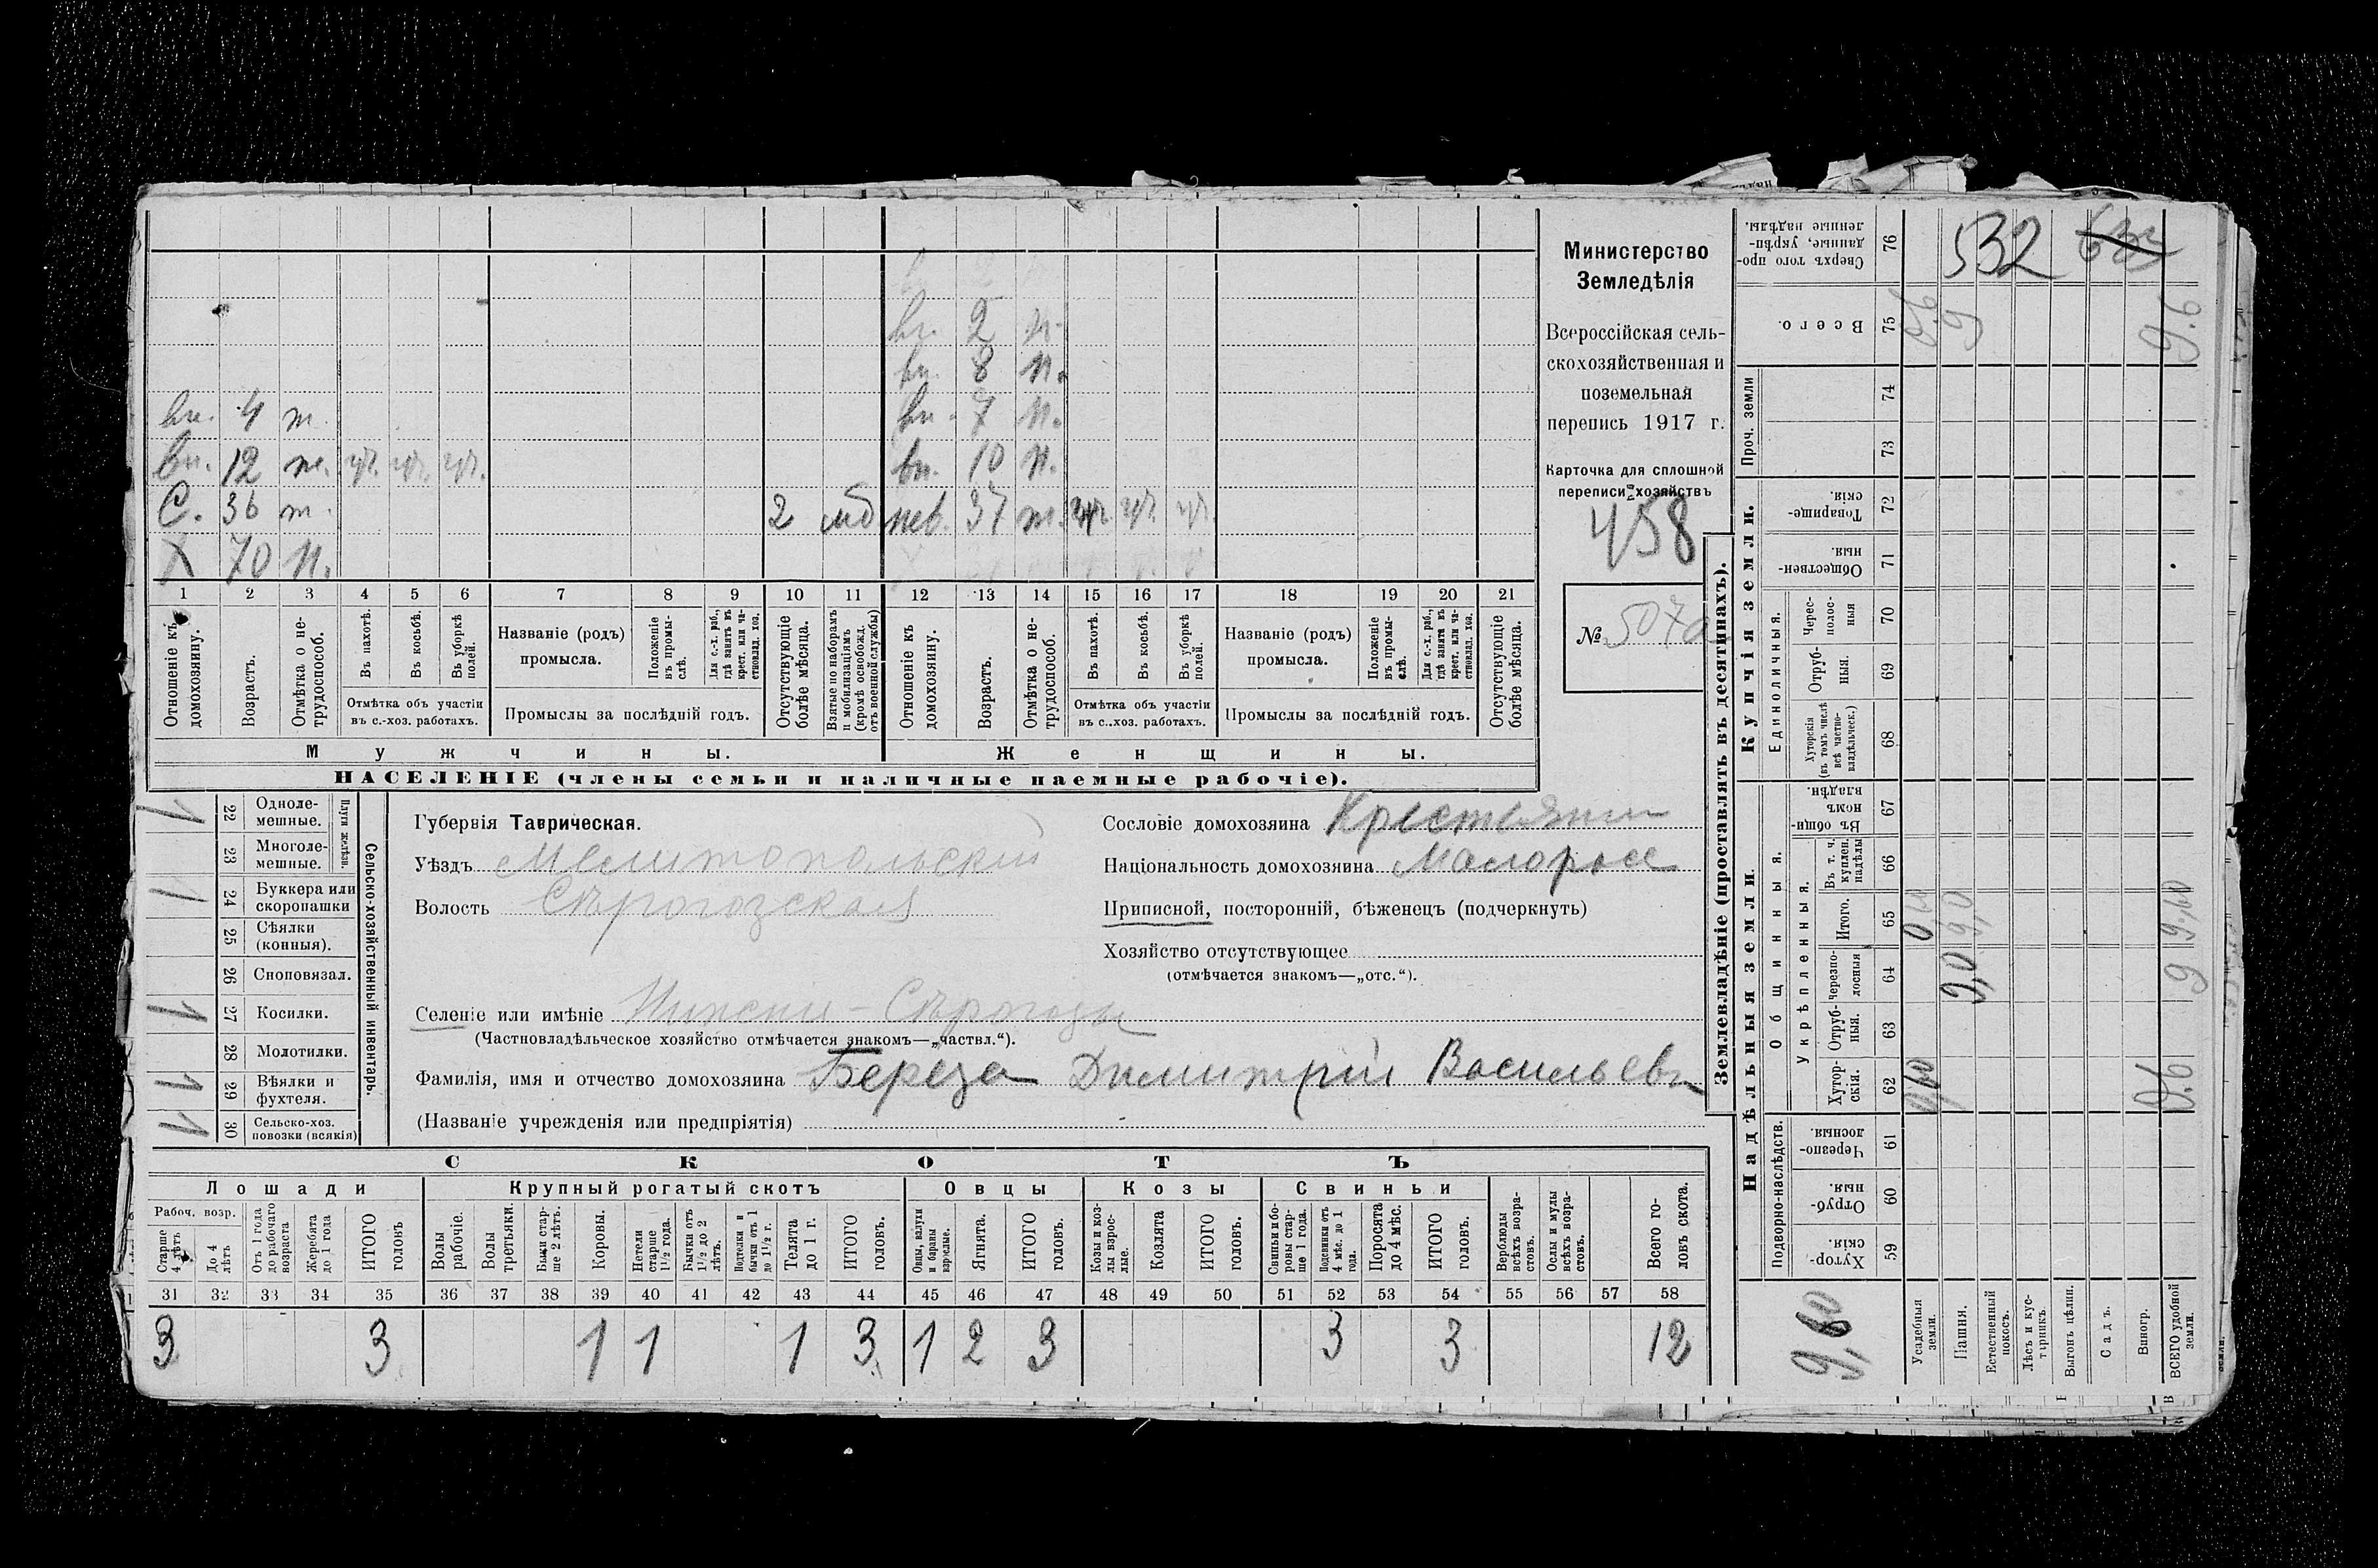 вн. 2 п.
вн. 8 п.
вн. 4 т. вн. 7 п.
вн. 12 т. уч. уч. уч. вн. 10 п.
С. 36 т. 2 мб нев. 37 т. уч. уч. уч.
Х 70 п.
1 2 3 4 5 6 7 8 9 10 11 12 13 14 15 16 17 18 19 20 21
Отношеніе къ домохозяину.
Возрастъ.
Отмѣтка о нетрудоспособ.
Въ пахотѣ.
Въ косьбѣ.
Въ уборкѣ полей.
Отмѣтка объ участіи
въ с.-хоз. работахъ.
Названіе (родъ)
промысла.
Положеніе въ промыслѣ.
Для с.-х. раб., гдѣ занятъ въ крест. или частновлад. хоз.
Промыслы за послѣдній годъ.
Отсутствующіе болѣе мѣсяца.
Взятые по наборамъ и мобилизаціямъ (кромѣ освобожд. отъ военной службы)
Отношеніе къ домохозяину.
Возрастъ.
Отмѣтка о нетрудоспособ.
Въ пахотѣ.
Въ косьбѣ.
Въ уборкѣ полей.
Отмѣтка объ участіи
въ с..хоз. работахъ.
Названіе (родъ)
промысла.
Положеніе въ промыслѣ.
Для с.-х. раб., гдѣ занята въ крест. или частновлад. хоз.
Промыслы за послѣдній годъ.
Отсутствующіе болѣе мѣсяца.
Мужчины. Женщины.
НАСЕЛЕНІЕ (члены семьи и наличные наемные рабочіе).
Министерство
Земледѣлія
Всероссійская сель-
скохозяйственная и
поземельная
перепись 1917 г.
Карточка для сплошной
переписи хозяйствъ
458
№ 507а
22 Однолемешные. 1
23 Многолемешные.
Плуги желѣзн.
24 Буккера или скоропашки 1
25 Сѣялки (конныя).
26 Сноповязал.
27 Косилки. 1
28 Молотилки.
29 Вѣялки и фухтеля. 1
30 Сельско-хоз. повозки (всякія) 1
Сельско-хозяйственный инвентарь.
Губернія Таврическая.
Уѣздъ Мелитопольскій
Волость Сѣрогозская
Селеніе или имѣніе Нижніи-Сѣрогозы
(Частновладѣльческое хозяйство отмѣчается знакомъ—„частвл.“).
Фамилія, имя и отчество домохозяина Береза Димитрій Васильевъ
(Названіе учрежденія или предпріятія)
Сословіе домохозяина Крестьянин
Національность домохозяина Малоросс
Приписной, посторонній, бѣженецъ (подчеркнуть)
Хозяйство отсутствующее
(отмѣчается знакомъ—„отс.“).
СКОТЪ
Лошади Крупный рогатый скотъ Овцы Козы Свиньи
Рабоч. возр.
Старше 4 лѣтъ
До 4 лѣтъ
Отъ 1 года до рабочаго возраста
Жеребята до 1 года
ИТОГО головъ
Волы рабочіе.
Волы третьяки.
Быки старше 2 лѣтъ.
Коровы.
Нетели старше 1½ года.
Бычки отъ 1½ до 2 лѣтъ.
Подтелки и бычки отъ 1 до 1½ г.
Телята до 1 г.
ИТОГО головъ.
Овцы, валухи и бараны взрослые.
Ягнята.
ИТОГО головъ.
Козы и козлы взрослые.
Козлята
ИТОГО головъ.
Свиньи и боровы старше 1 года.
Подсвинки отъ 4 мѣс. до 1 года.
Поросята до 4 мѣс.
ИТОГО головъ.
Верблюды всѣхъ возрастовъ.
Ослы и мулы всѣхъ возрастовъ.
Всего головъ скота.
31 32 33 34 35 36 37 38 39 40 41 42 43 44 45 46 47 48 49 50 51 52 53 54 55 56 57 58
3 3 1 1 1 3 1 2 3 3 3 12
Землевладѣніе (проставлять въ десятинахъ).
Купчія земли.
Надѣльныя земли.
Единоличныя.
Общинныя.
Укрѣпленныя.
Подворно-наслѣдств.
Проч. земли
76 Сверхъ того проданные, укрѣпленные надѣлы. 532
75 Всего. 0.6 9 9.6
74
73
72 Товарищескія.
71 Общественныя.
70 Чересполосныя
69 Отрубныя.
68 Хуторскія (въ томъ числѣ всѣ частновладѣльческ.)
67 Въ общинномъ владѣн.
66 Въ т. ч. куплен. надѣлы
65 Итого. 0,60 9,0 9,60
64 Черезполосныя 9,0 9
63 Отрубныя.
62 Хуторскія. 0,60 0.6
61 Черезполосныя.
60 Отрубныя.
59 Хуторскія.
9,60
Усадебныя земли.
Пашня.
Естественный покосъ.
Лѣсъ и кустарникъ.
Выгонъ цѣлин.
Садъ.
Виногр.
ВСЕГО удобной земли.